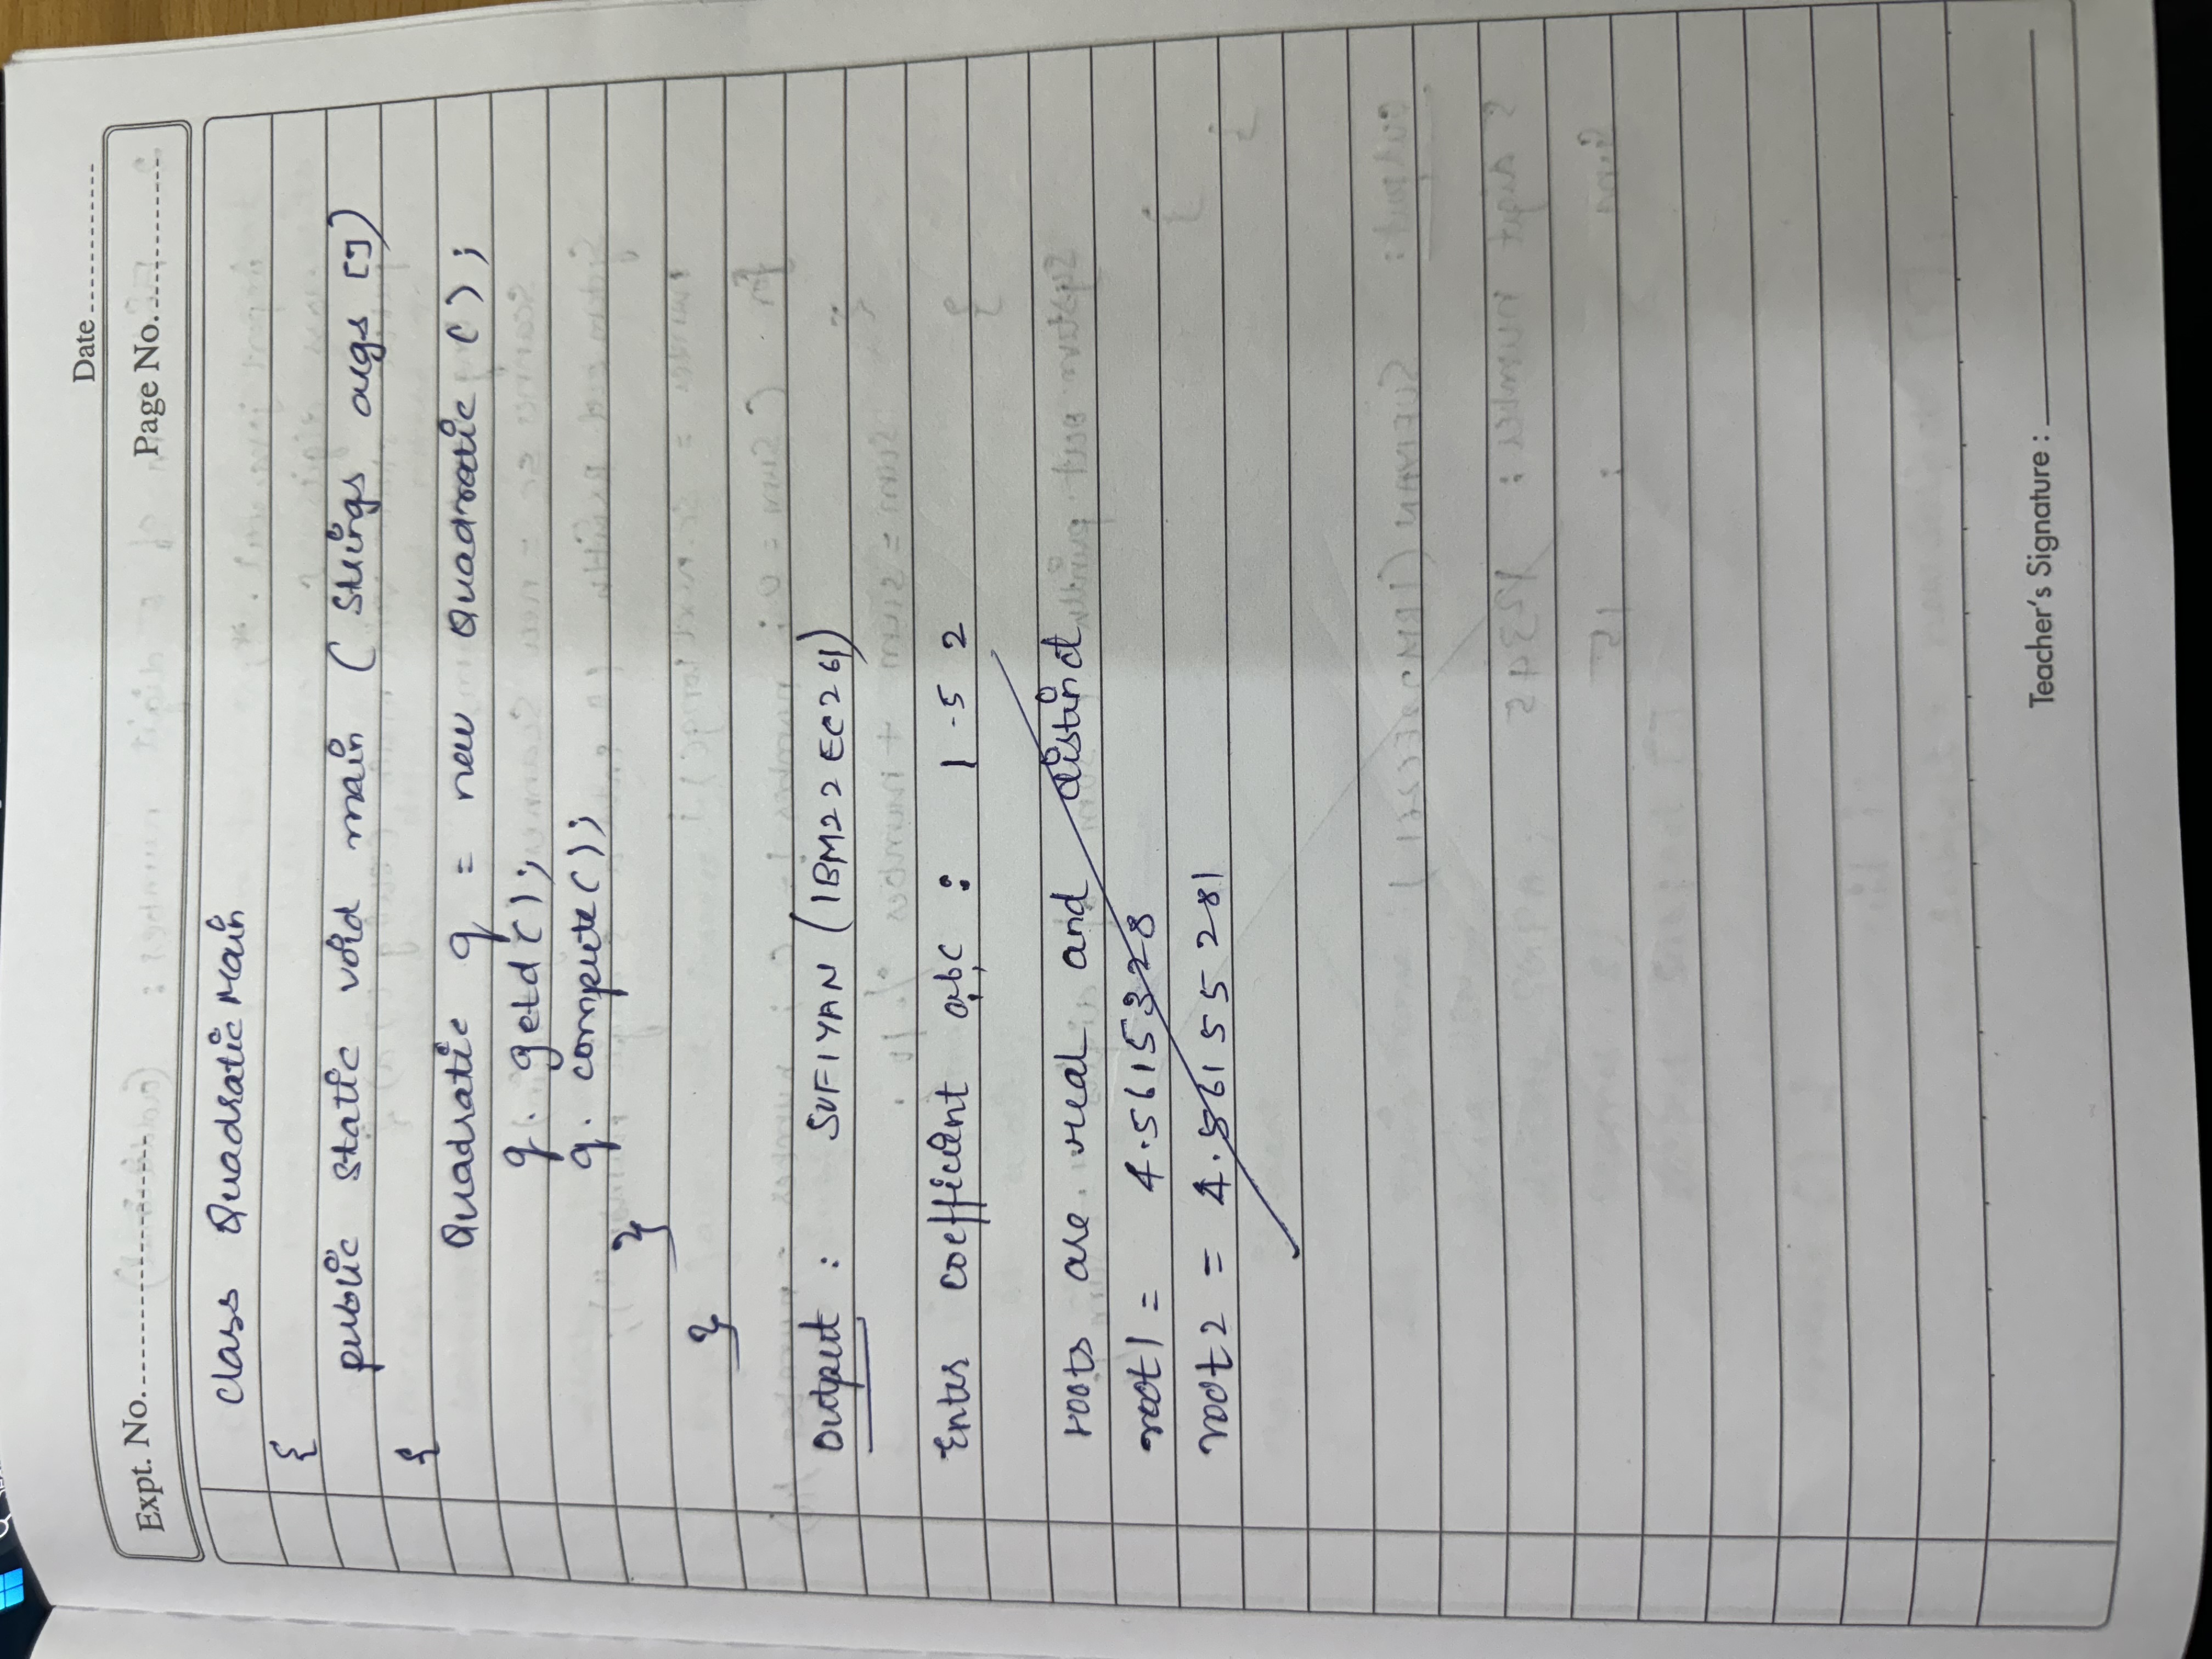 Date
Expt. No.
Page No.
class QuadraticMain
{
public static void main (Strings args [])
{
Quadratic q = new Quadratic ();
q. getd();
q. compute();
}
}
Output : SUFIYAN (1BM22EC261)
Enter coefficient a,b,c : 1 -5 2
roots are real and distinct
root1 = 4.5615328
root2 = 4.56155281
Teacher's Signature :